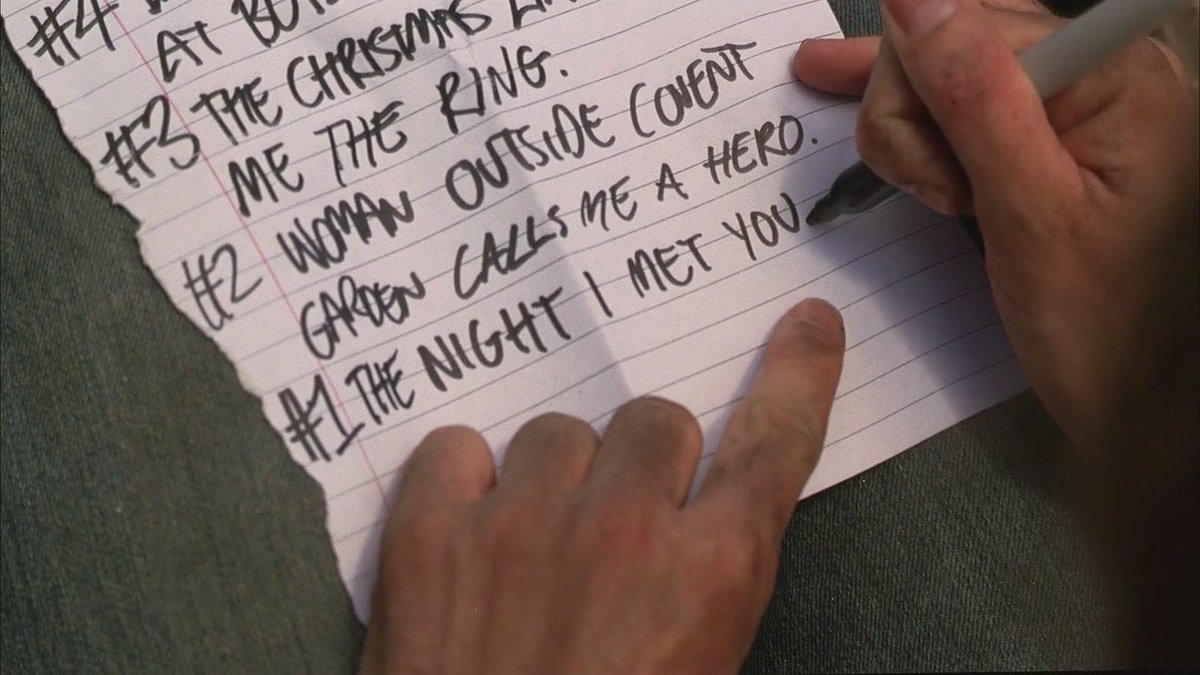 #4
AT
#3 THE CHRISTMAS
ME THE RING.
#2 WOMAN OUTSIDE COVENT
GARDEN CALLS ME A HERO.
#1 THE NIGHT I MET YOU